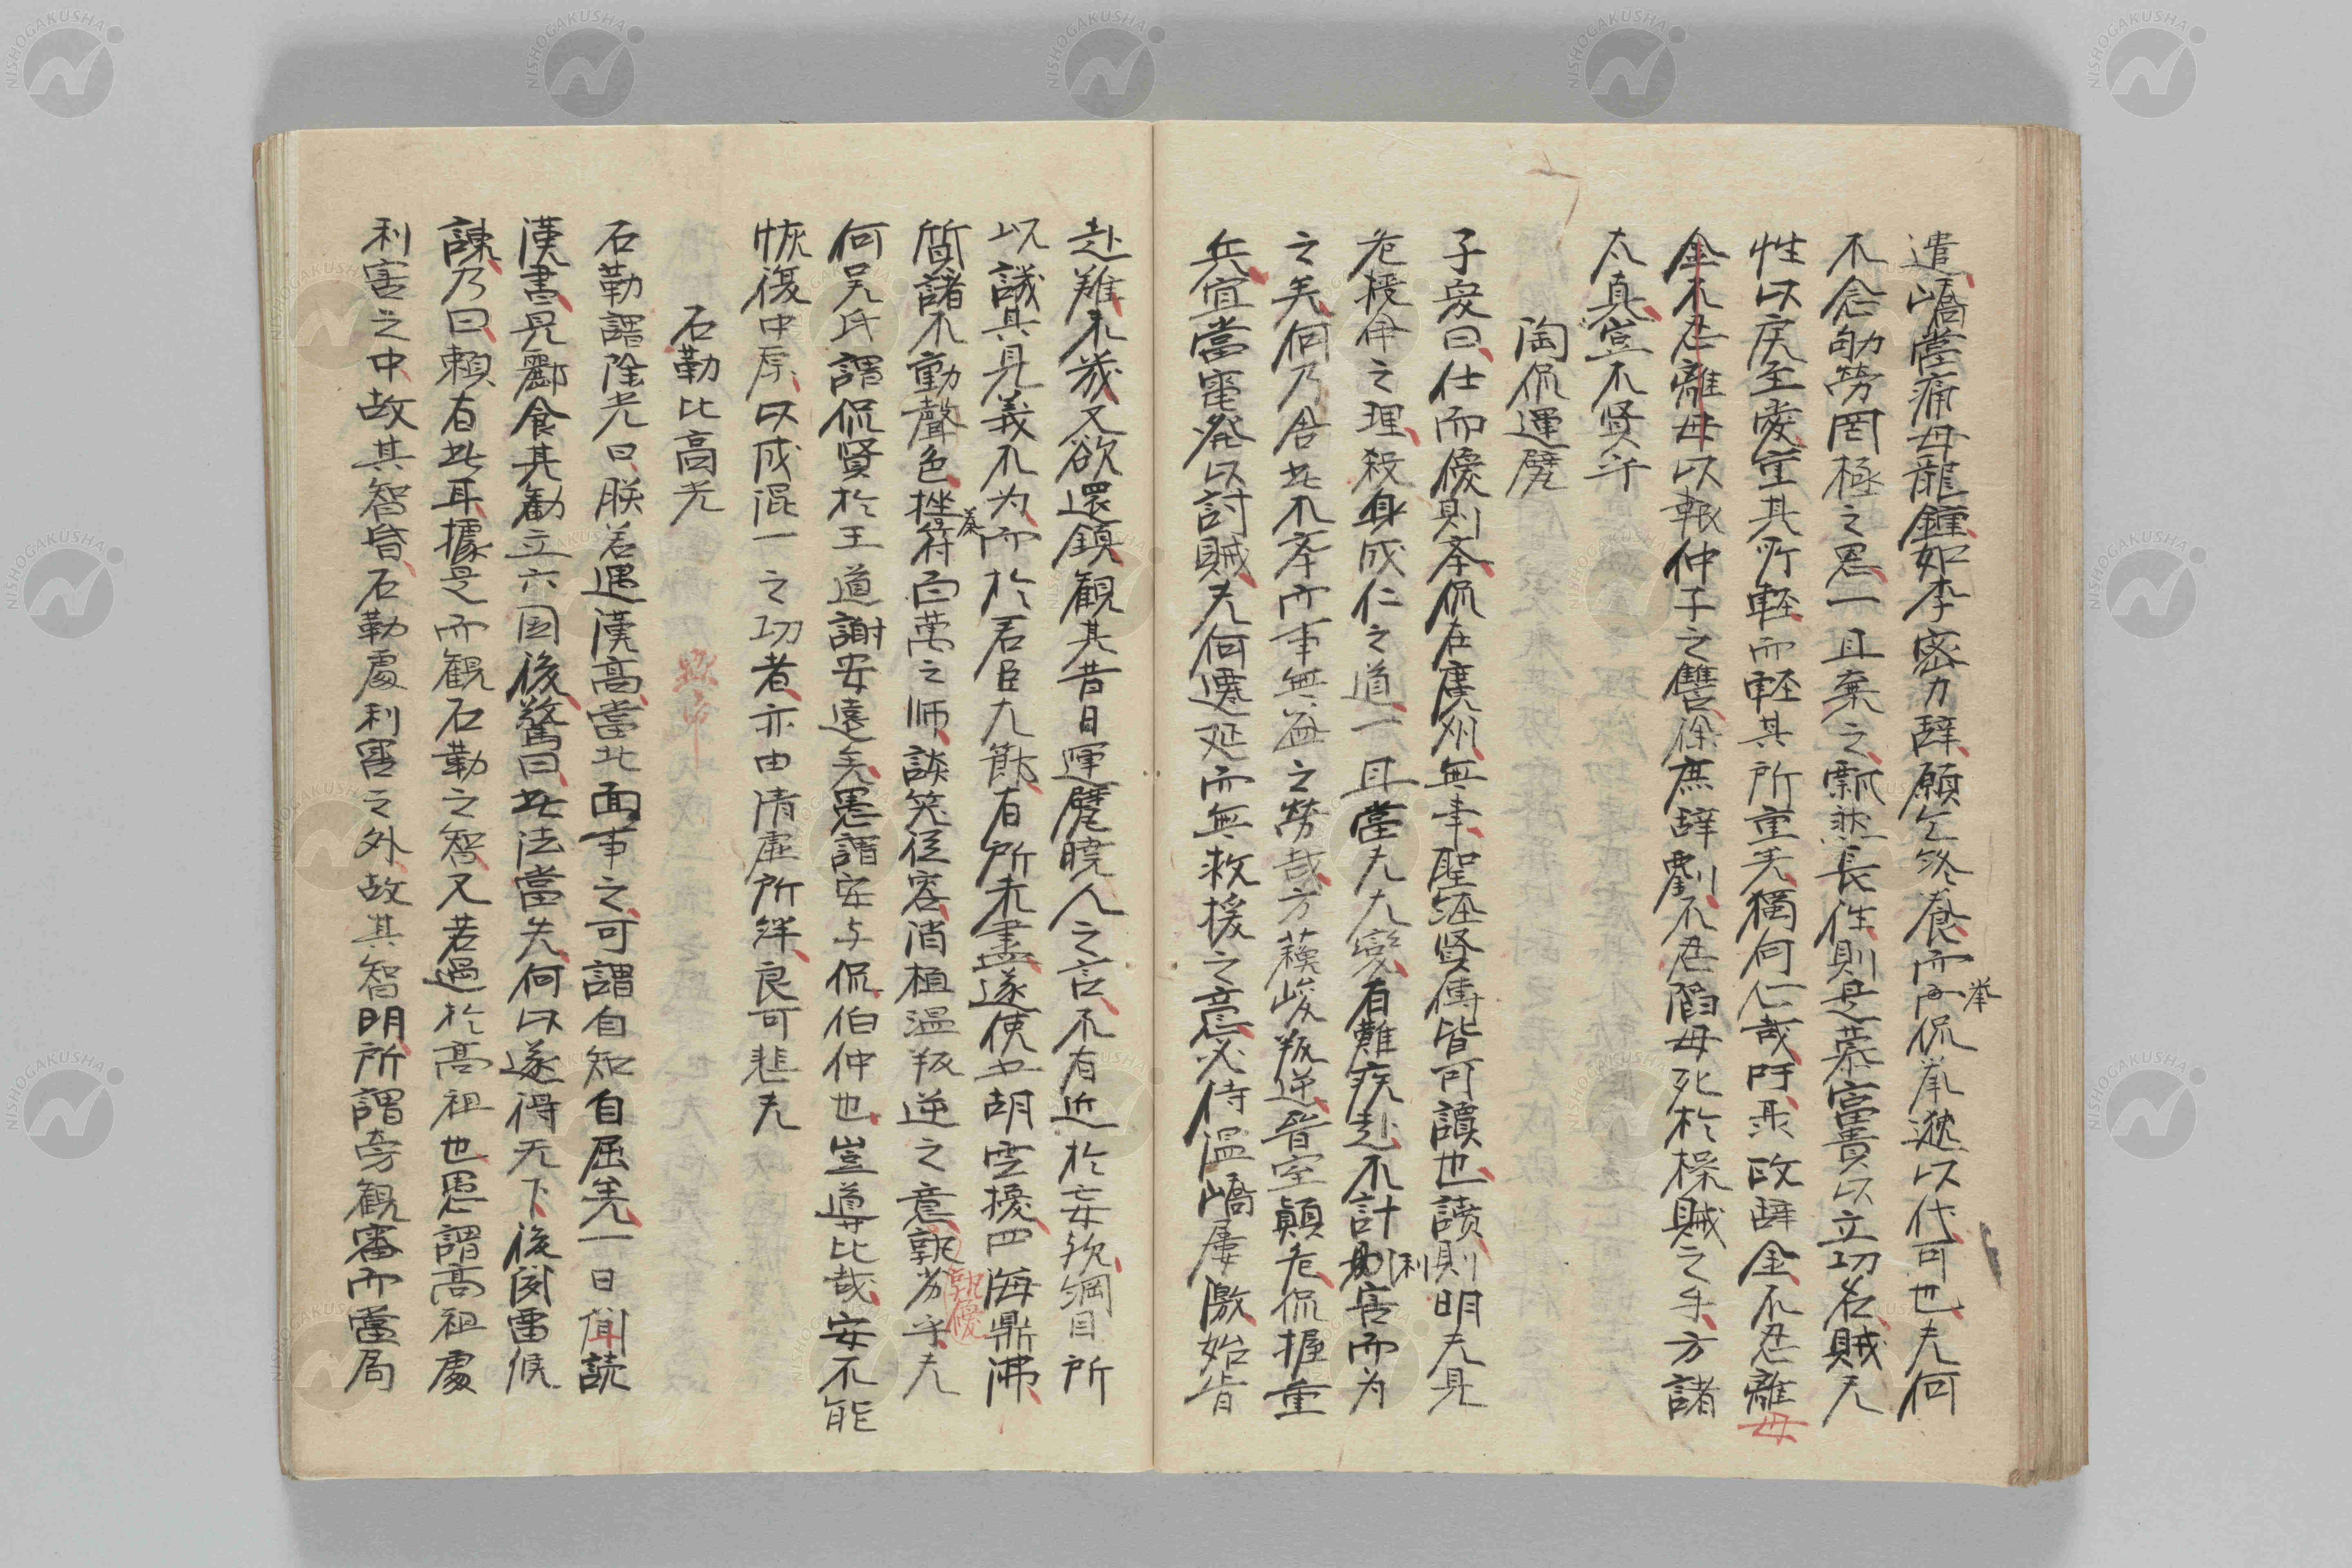 遣嶠當痛母龍鍾如李密力辭願乞終養而侃挙遜以代可也夫何
不念劬勞罔極之恩一旦棄之飄然長往則是慕富貴以立功名賊夫
性以戻至愛重其所軽而軽其所重羌獨何仁哉吁聶政辞金不忍離母
金不忍離母以報仲子之讐徐庶辞劉不忍陷母死於操賊之手方諸
太真豈不賢乎
陶侃運甓
子夏曰仕而優則斈侃在廣州無事聖経賢傳皆可讀也讀則明夫見
危授命之理殺身成仁之道一旦當夫大變有難疾赴不計利害而为
之矣何乃舎此不斈而事無益之勞哉方蘓峻叛逆晉室顛危侃握重
兵宜當電発以討賊夫何遷延而無救援之意必待温嶠屡激始肯
赴難未幾又欲還鎮観其昔日運甓曉人之言不有近於妄欤綱目所
以譏其見義不为而於君臣大節有所未盡遂使五胡雲擾四海鼎沸
質諸不動聲色挫符秦百萬之师談笑従容消植温叛逆之意孰優孰劣乎夫
何吴氏謂侃賢於王道謝安遠矣愚謂安与侃伯仲也豈導比哉安不能
恢復中原以成混一之功者亦由清虚所絆良可悲夫
石勒比高光
石勒謂除光曰朕若遇漢高當北面事之可謂自知自屈羌一日聞読
漢書見酈食其勧立六国後驚曰此法當失何以遂得天下後聞畱候
諫乃曰頼有此耳據是而観石勒之智又若過於高祖也愚謂高祖處
利害之中故其智昏石勒處利害之外故其智明所謂旁観審而當局